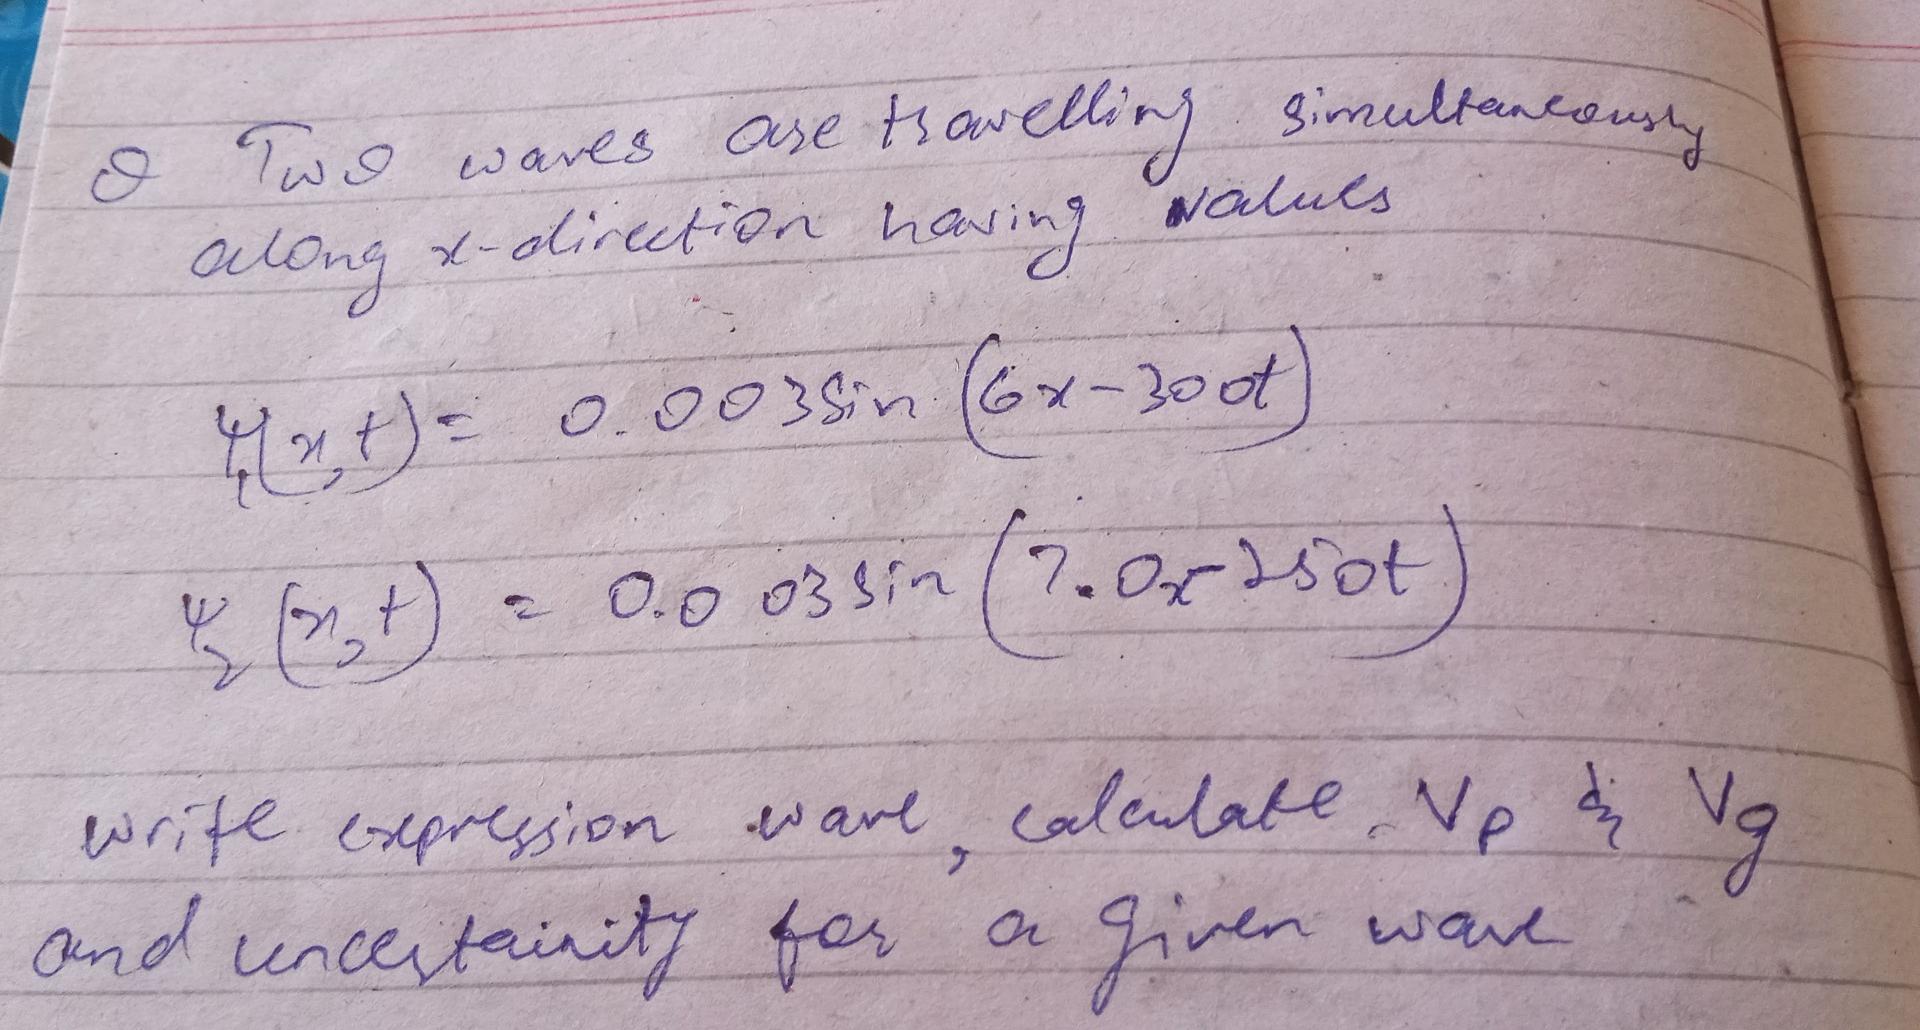 Q Two waves are travelling simultaneously
along x-direction having values
ψ₁(x,t) = 0.003 sin (6x-300t)
ψ₂(x,t) = 0.003 sin (7.0x-250t)
write expression wave, calculate Vp & Vg
and uncertainity for a given wave